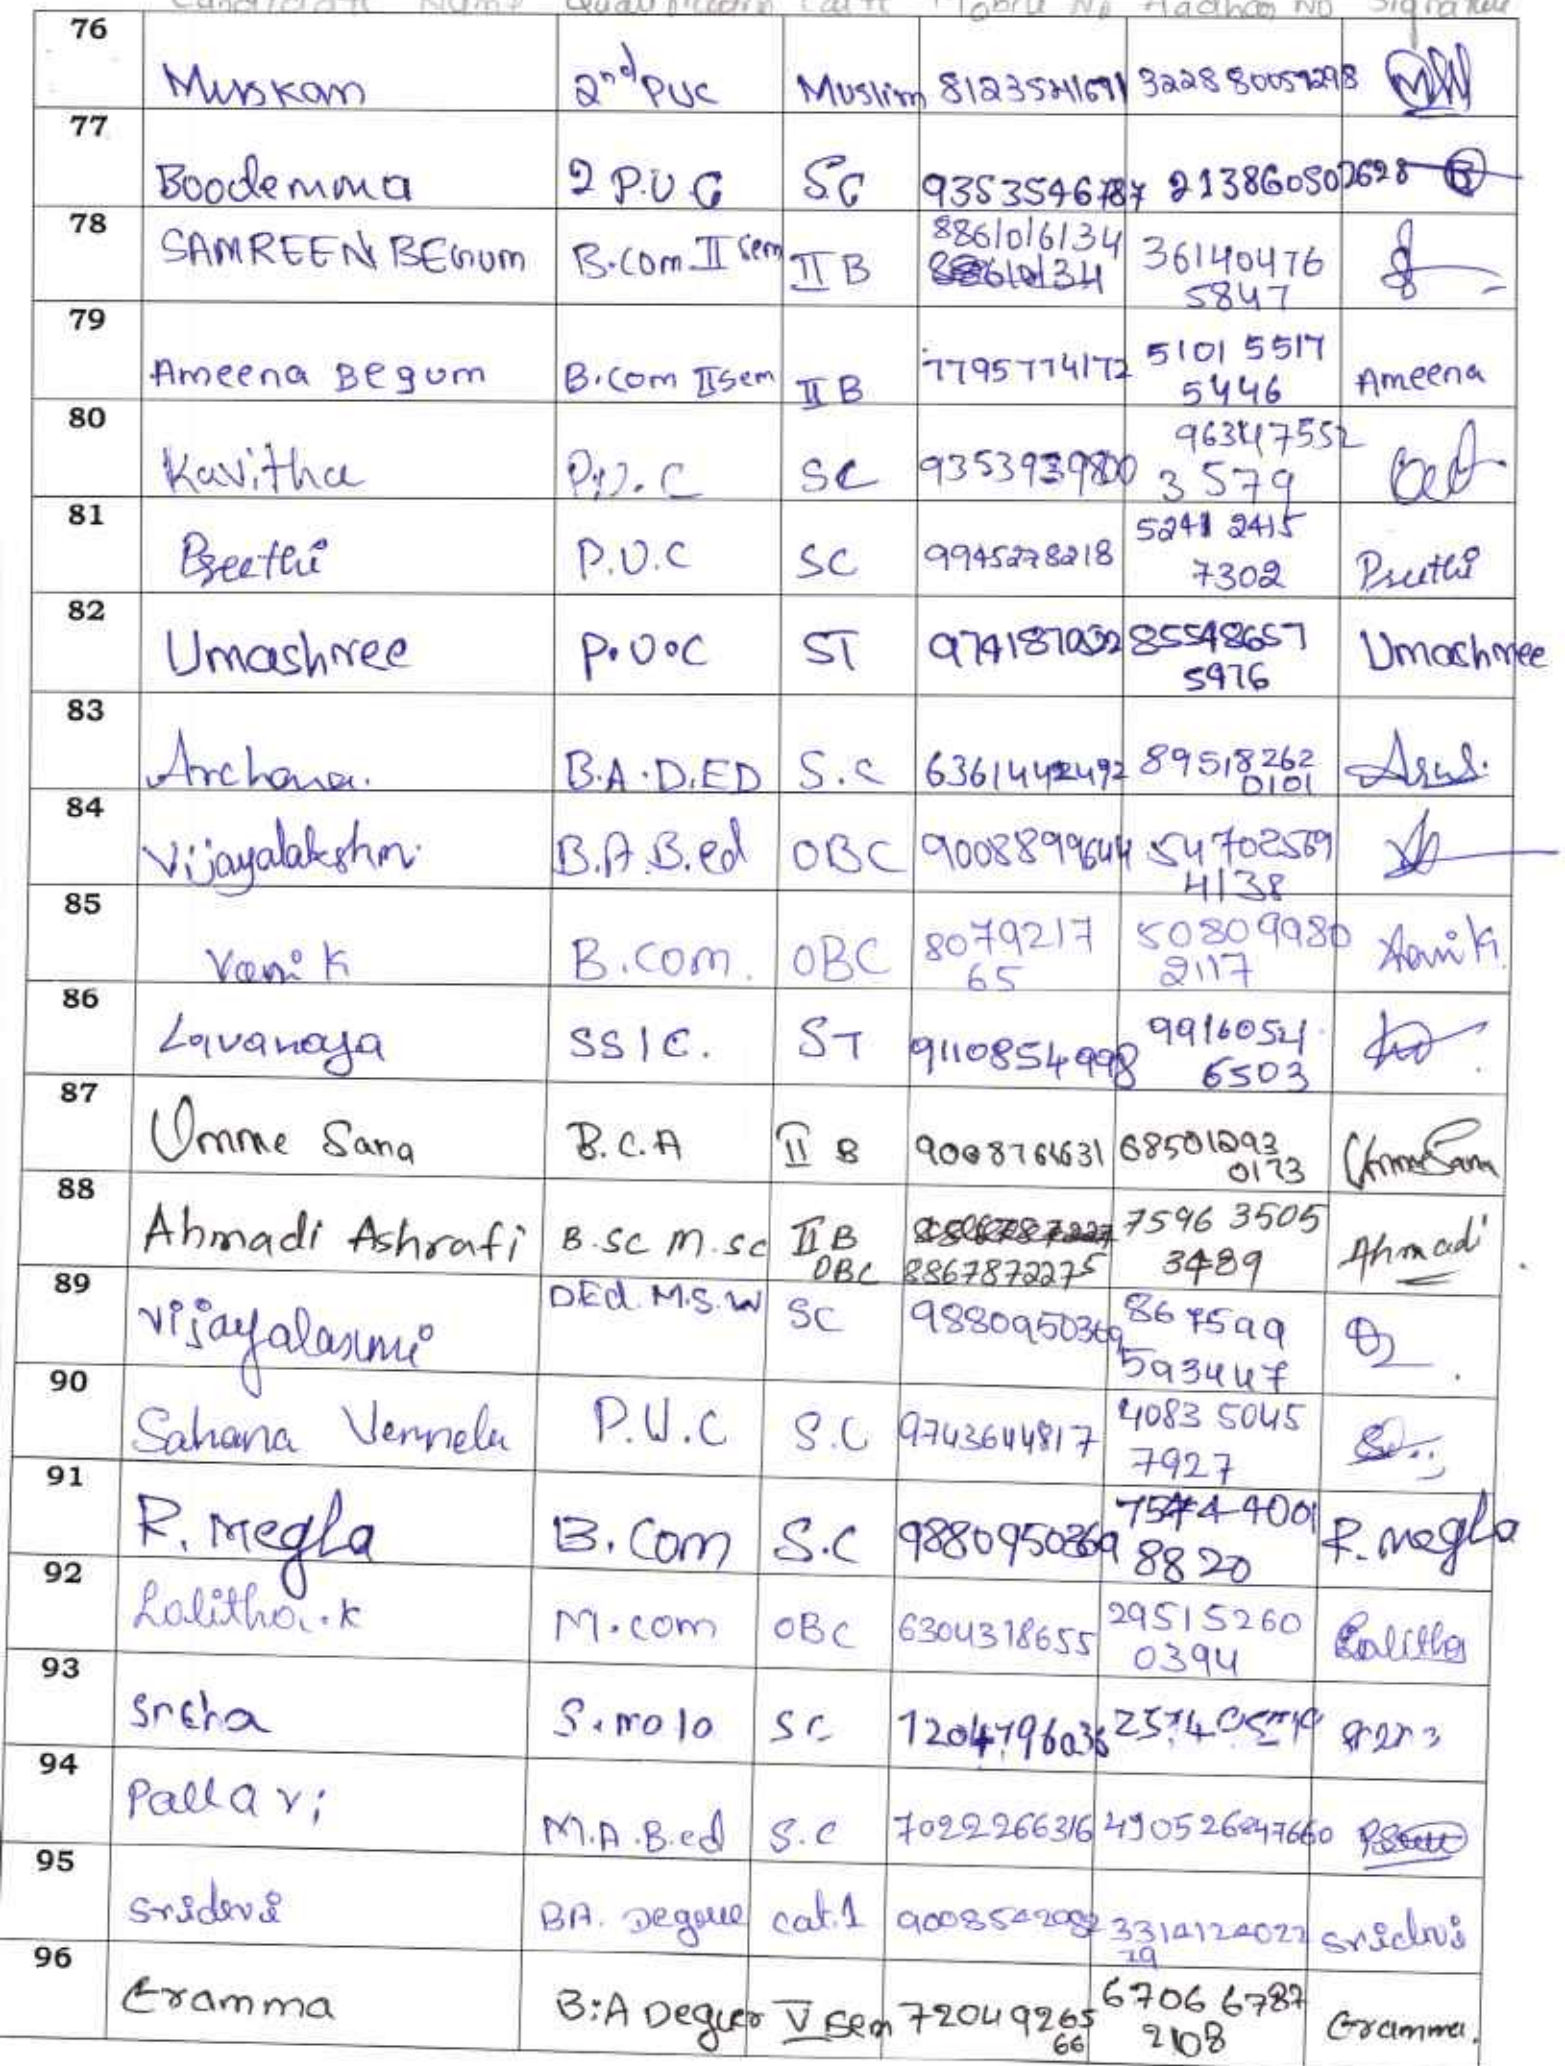 Candidate Name Qualification Caste Mobile No Aadhar No Signature
76 Muskan 2nd PUC Muslim 322880057298
77 Boodemma 2 P.U.C SC 9353546787 213860502628
78 SAMREEN BEGUM B.Com II Sem II B 8861016134 36140476
5847
79 Ameena Begum B.Com II Sem II B 7795774172 5101 5517
5446 Ameena
80 Kavitha P.U.C SC 9353939800 963447552
3579
81 Preethi P.U.C SC 9945278218 5241 2415
7302 Preethi
82 Umashree P.U.C ST 85548657
5976 Umashree
83 Archana. B.A.D.ED S.C 6361442492 89518262
0101
84 Vijayalakshmi B.A.B.ed OBC 9008899644 54702569
4138
85 Vani K B.Com. OBC 80792177
65 50809980
2117 Vani K.
86 Lavanaya SSLC. ST 9110854998 9916054
6503
87 Umme Sana B.C.A II B 9008764631 68501293
0173 Umme Sana
88 Ahmadi Ashrafi B.SC M.SC II B
OBC 8867872275 7596 3505
3489 Ahmadi
89 Vijayalaxmi DEd. M.S.W SC 9880950369 867599
593447
90 Sahana Vennela P.U.C S.C 9743644817 4083 5045
7927
91 R. Megla B.Com S.C 9880950369 7544 4001
8820 R. Megla
92 Lalitha.K M.com OBC 6304318655 29515260
0394 Lalitha
93 Sneha SC 7204796036
94 Pallavi M.A.B.ed S.C 7022266316 490526847660
95 Sridevi BA. Degree cat.1 9008542082 3314124022
79 Sridevi
96 Eramma B:A Degree V Sem 72049265
66 6706 6787
2108 Eramma.